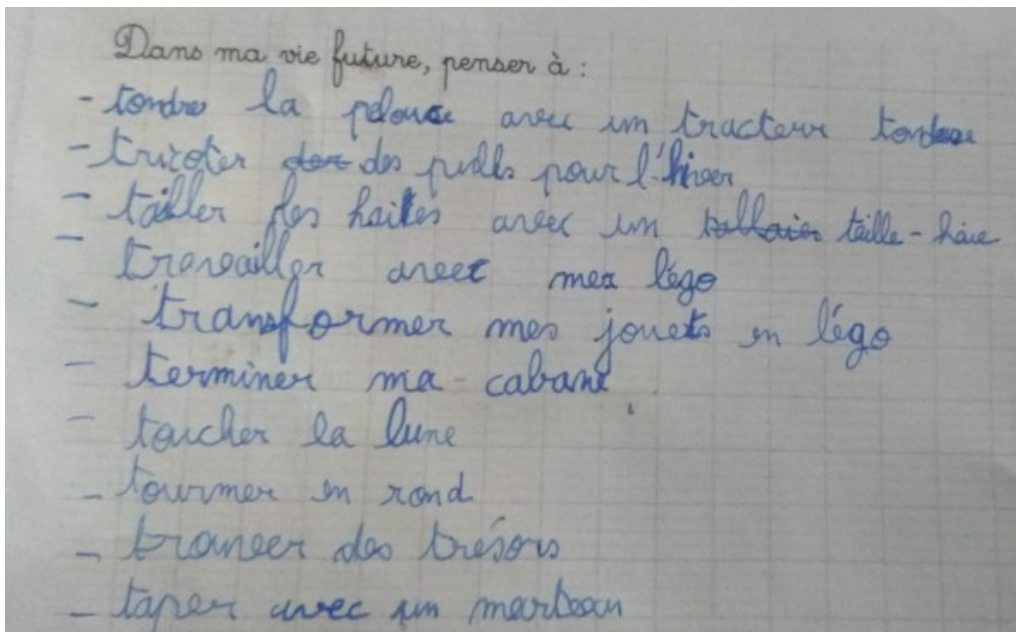 Dans ma vie future, penser à :
- tondre la pelouse avec un tracteur tondeuse
- tricoter des pulls pour l'hiver
- tailler les haites avec un taille-haie
- travailler avec mes légo
- transformer mes jouets en légo
- terminer ma cabane
- toucher la lune
- tourner en rond
- trouver des trésors
- taper avec un marteau